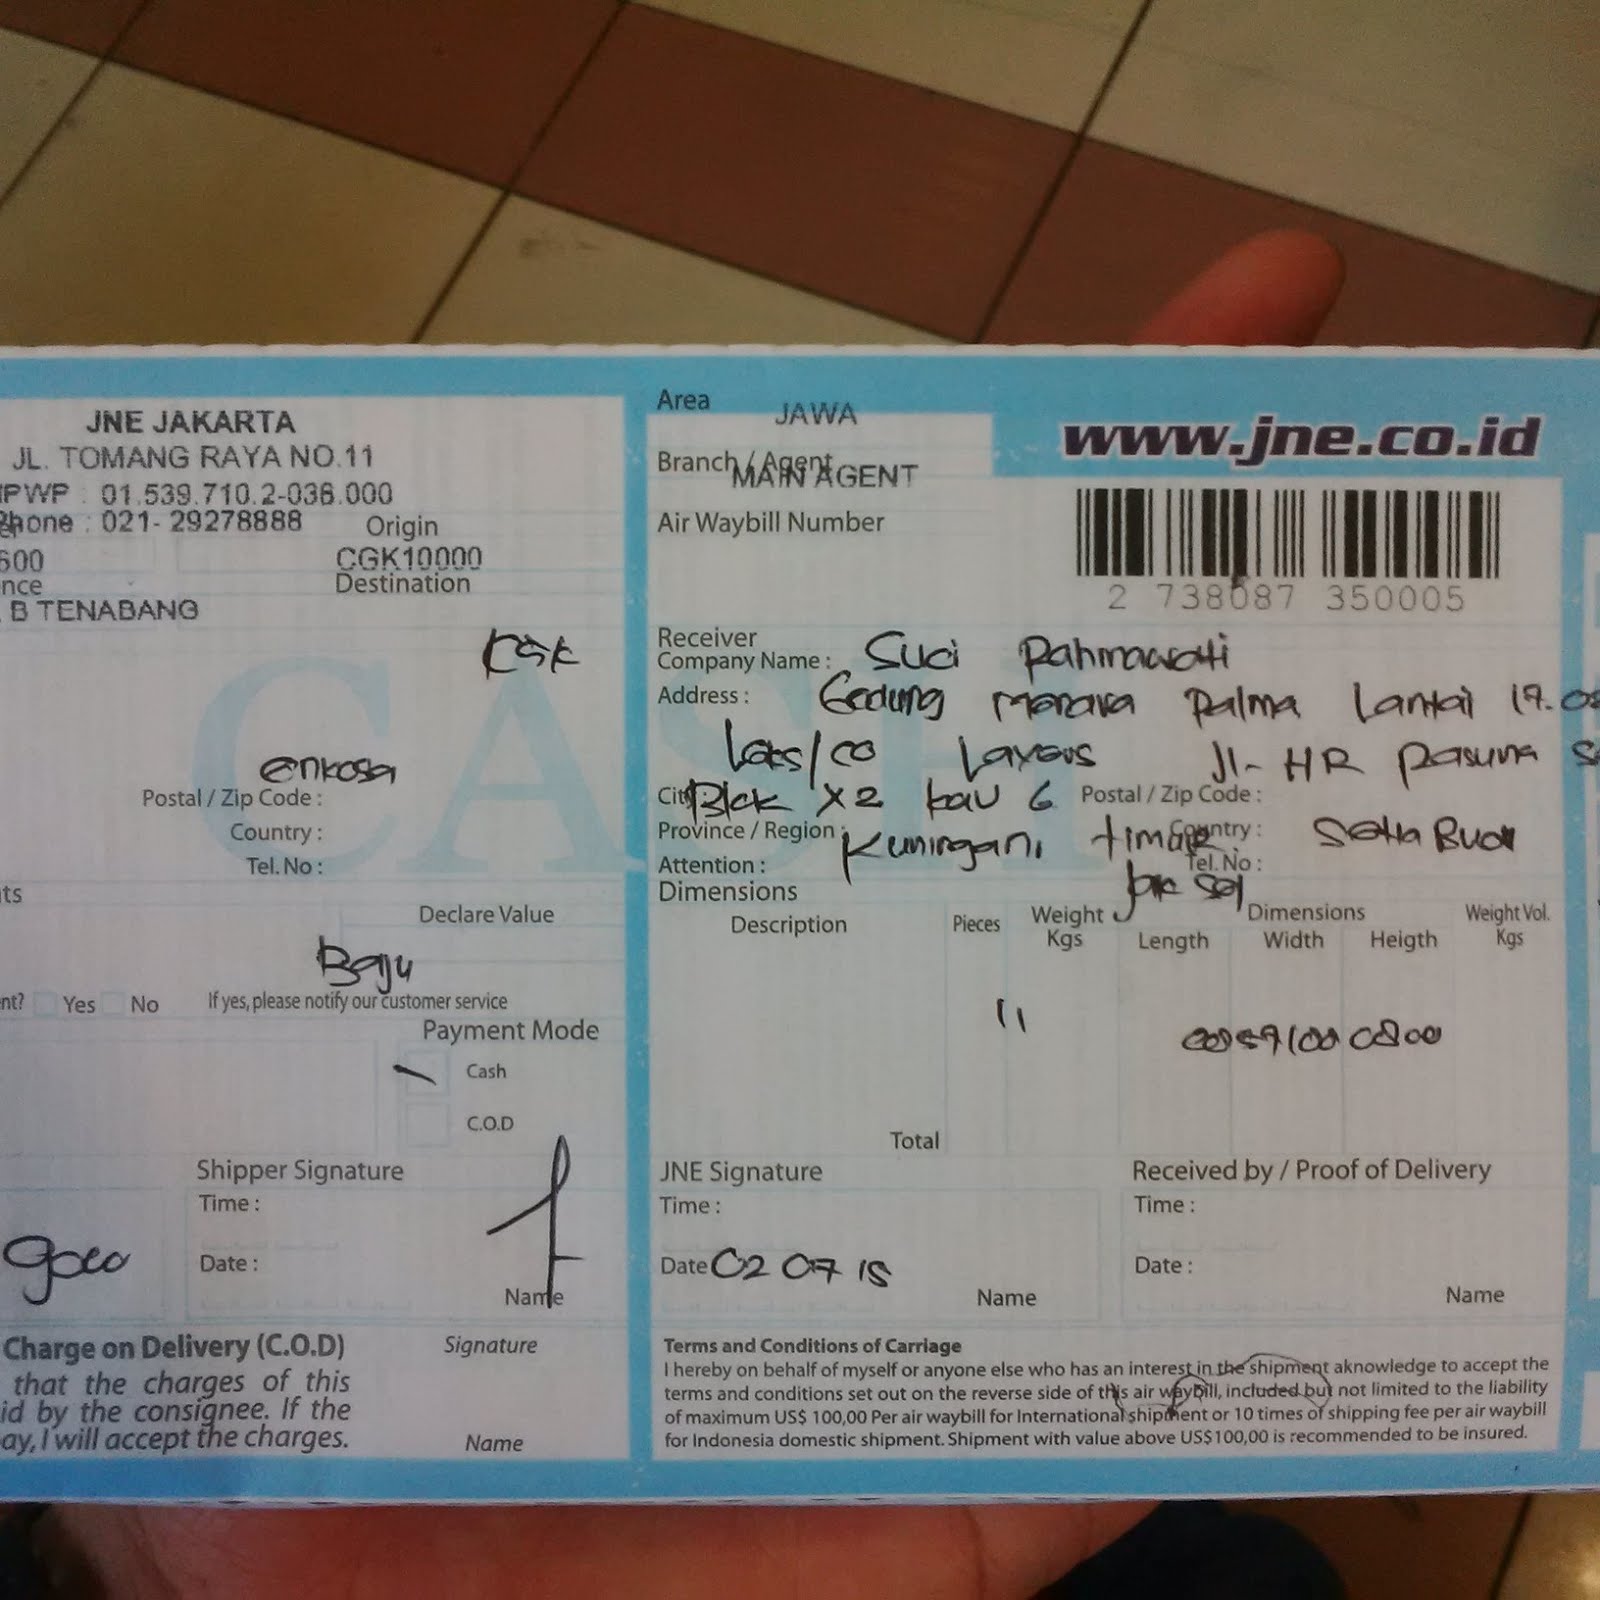 JNE JAKARTA
JL. TOMANG RAYA NO.11
NPWP : 01.539.710.2-036.000
Phone : 021- 29278888
Origin
600
CGK10000
nce
Destination
B TENABANG
CASH
Postal / Zip Code :
Country :
Tel. No :
ts
Declare Value
Baju
nt? Yes No If yes, please notify our customer service
Payment Mode
Cash
C.O.D
Shipper Signature
Time :
Date :
Name
Charge on Delivery (C.O.D)
Signature
that the charges of this
id by the consignee. If the
ay, I will accept the charges.
Name
Area JAWA
Branch / Agent MAIN AGENT
www.jne.co.id
Air Waybill Number
2 738087 350005
Receiver
Company Name : Suci Rahmawati
Address : Gedung Menara Palma Lantai 17.
Jl- HR Rasuna
City Blok X2 kav 6 Postal / Zip Code :
Province / Region : Kuningan, timur Country : Setia Budi
Attention : Tel. No :
Jak sel
Dimensions
Description Pieces Weight Kgs Dimensions Length Width Heigth Weight Vol. Kgs
11
Total
JNE Signature
Time :
Date 02 07 15
Name
Received by / Proof of Delivery
Time :
Date :
Name
Terms and Conditions of Carriage
I hereby on behalf of myself or anyone else who has an interest in the shipment aknowledge to accept the
terms and conditions set out on the reverse side of this air waybill, included but not limited to the liability
of maximum US$ 100,00 Per air waybill for International shipment or 10 times of shipping fee per air waybill
for Indonesia domestic shipment. Shipment with value above US$100,00 is recommended to be insured.